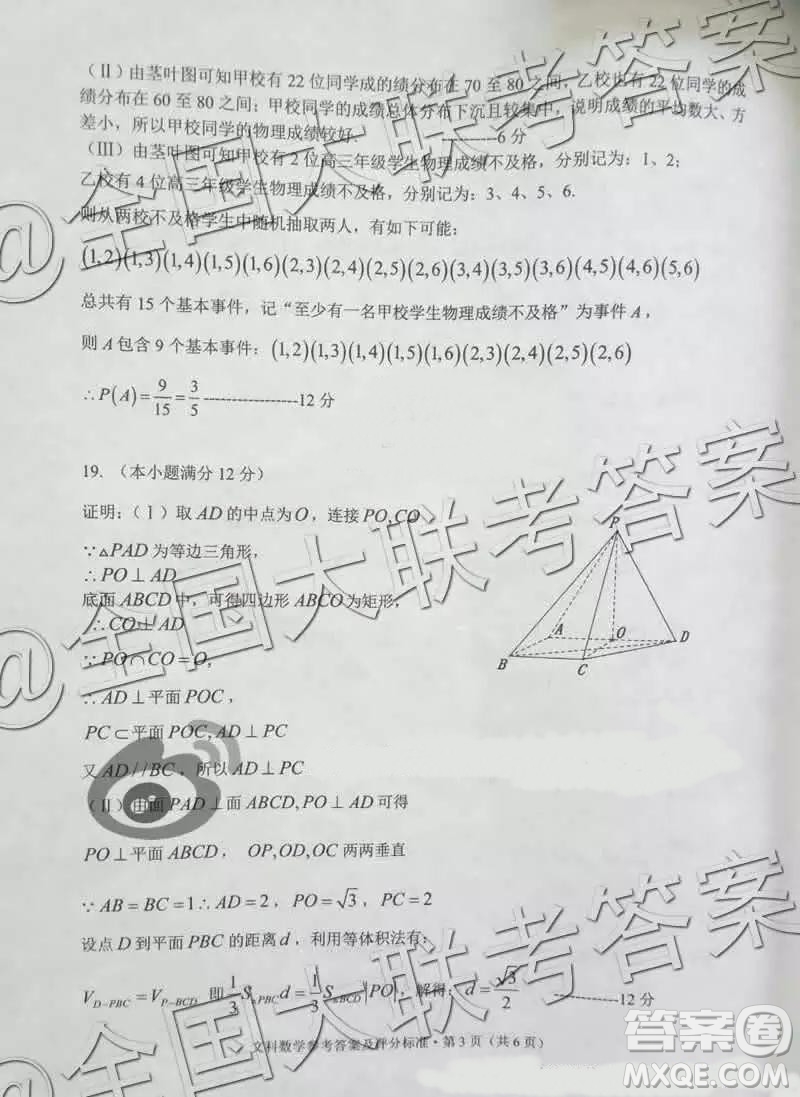 (Ⅱ)由茎叶图可知甲校有 22 位同学成的绩分布在 70 至 80 之间,乙校也有 22 位同学的成
绩分布在 60 至 80 之间;甲校同学的成绩总体分布下沉且较集中,说明成绩的平均数大、方
差小,所以甲校同学的物理成绩较好. -----------6 分
(Ⅲ)由茎叶图可知甲校有 2 位高三年级学生物理成绩不及格,分别记为:1、2;
乙校有 4 位高三年级学生物理成绩不及格,分别记为:3、4、5、6.
则从两校不及格学生中随机抽取两人,有如下可能:
(1,2)(1,3)(1,4)(1,5)(1,6)(2,3)(2,4)(2,5)(2,6)(3,4)(3,5)(3,6)(4,5)(4,6)(5,6)
总共有 15 个基本事件,记“至少有一名甲校学生物理成绩不及格”为事件 A,
则 A 包含 9 个基本事件:(1,2)(1,3)(1,4)(1,5)(1,6)(2,3)(2,4)(2,5)(2,6)
∴P(A)=9/15=3/5 ------------------12 分
19. (本小题满分 12 分)
证明:(Ⅰ)取 AD 的中点为 O,连接 PO,CO
∵△PAD 为等边三角形,
∴PO⊥AD
底面 ABCD 中,可得四边形 ABCO 为矩形,
∴CO⊥AD
∵PO∩CO=O,
∴AD⊥平面 POC,
PC⊂平面 POC,AD⊥PC
又 AD//BC,所以 AD⊥PC
(Ⅱ)由面 PAD⊥面 ABCD,PO⊥AD 可得
PO⊥平面 ABCD, OP,OD,OC 两两垂直
∵AB=BC=1∴AD=2,PO=√3,PC=2
设点 D 到平面 PBC 的距离 d,利用等体积法有:
V_{D-PBC}=V_{P-BCD} 即 1/3 S_{△PBC}d=1/3 S_{△BCD}|PO|,解得:d=√3/2 ------------12 分
P
A
O
D
B
C
文科数学参考答案及评分标准·第 3 页(共 6 页)
@全国大联考答案
@全国大联考答案
@全国大联考答案
答案圈
MXQE.COM